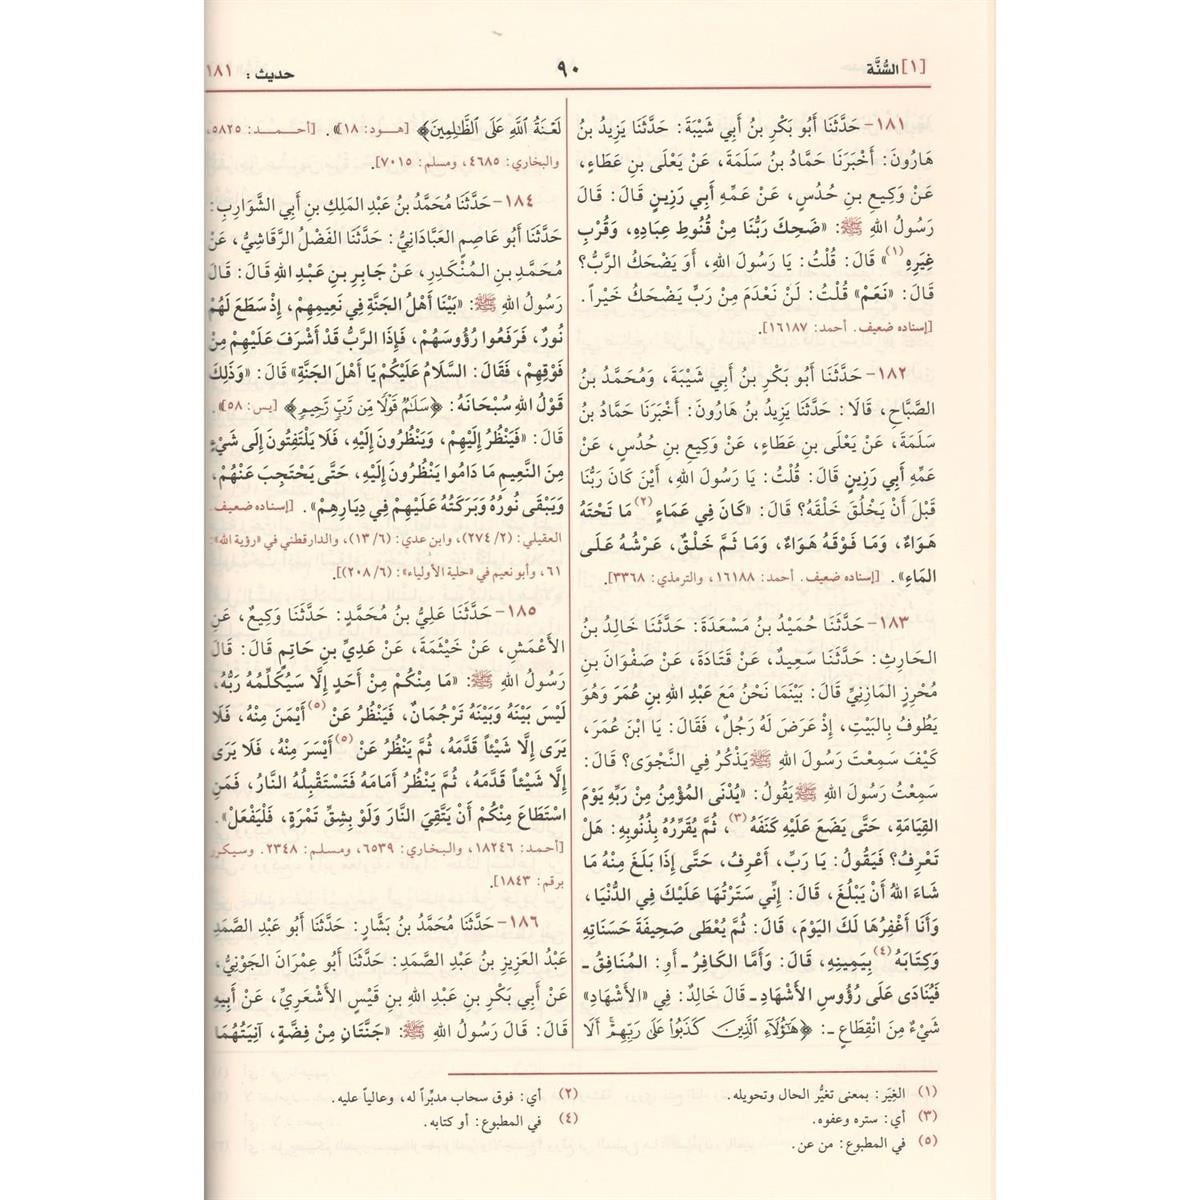 [١] السُّنَّة
٩٠
حديث : ١٨١
١٨١- حَدَّثَنَا أَبُو بَكْرِ بنُ أَبِي شَيْبَةَ: حَدَّثَنَا يَزِيدُ بنُ
هَارُونَ: أَخْبَرَنَا حَمَّادُ بنُ سَلَمَةَ، عَنْ يَعْلَى بنِ عَطَاءٍ،
عَنْ وَكِيعِ بنِ حُدُسٍ، عَنْ عَمِّهِ أَبِي رَزِينٍ قَالَ: قَالَ
رَسُولُ اللهِ ﷺ: «ضَحِكَ رَبُّنَا مِنْ قُنُوطِ عِبَادِهِ، وَقُرْبِ
غِيَرِهِ(١)» قَالَ: قُلْتُ: يَا رَسُولَ اللهِ، أَوَ يَضْحَكُ الرَّبُّ؟
قَالَ: «نَعَمْ» قُلْتُ: لَنْ نَعْدَمَ مِنْ رَبٍّ يَضْحَكُ خَيْراً.
[إسناده ضعيف. أحمد: ١٦١٨٧].
١٨٢- حَدَّثَنَا أَبُو بَكْرِ بنُ أَبِي شَيْبَةَ، وَمُحَمَّدُ بنُ
الصَّبَّاحِ، قَالَا: حَدَّثَنَا يَزِيدُ بنُ هَارُونَ: أَخْبَرَنَا حَمَّادُ بنُ
سَلَمَةَ، عَنْ يَعْلَى بنِ عَطَاءٍ، عَنْ وَكِيعِ بنِ حُدُسٍ، عَنْ
عَمِّهِ أَبِي رَزِينٍ قَالَ: قُلْتُ: يَا رَسُولَ اللهِ، أَيْنَ كَانَ رَبُّنَا
قَبْلَ أَنْ يَخْلُقَ خَلْقَهُ؟ قَالَ: «كَانَ فِي عَمَاءٍ(٢) مَا تَحْتَهُ
هَوَاءٌ، وَمَا فَوْقَهُ هَوَاءٌ، وَمَا ثَمَّ خَلْقٌ، عَرْشُهُ عَلَى
المَاءِ». [إسناده ضعيف. أحمد: ١٦١٨٨، والترمذي: ٣٣٦٨].
١٨٣- حَدَّثَنَا حُمَيْدُ بنُ مَسْعَدَةَ: حَدَّثَنَا خَالِدُ بنُ
الحَارِثِ: حَدَّثَنَا سَعِيدٌ، عَنْ قَتَادَةَ، عَنْ صَفْوَانَ بنِ
مُحْرِزٍ المَازِنِيِّ قَالَ: بَيْنَمَا نَحْنُ مَعَ عَبْدِ اللهِ بنِ عُمَرَ وَهُوَ
يَطُوفُ بِالبَيْتِ، إِذْ عَرَضَ لَهُ رَجُلٌ، فَقَالَ: يَا ابْنَ عُمَرَ،
كَيْفَ سَمِعْتَ رَسُولَ اللهِ ﷺ يَذْكُرُ فِي النَّجْوَى؟ قَالَ:
سَمِعْتُ رَسُولَ اللهِ ﷺ يَقُولُ: «يُدْنَى المُؤْمِنُ مِنْ رَبِّهِ يَوْمَ
القِيَامَةِ، حَتَّى يَضَعَ عَلَيْهِ كَنَفَهُ(٣)، ثُمَّ يُقَرِّرُهُ بِذُنُوبِهِ: هَلْ
تَعْرِفُ؟ فَيَقُولُ: يَا رَبِّ، أَعْرِفُ، حَتَّى إِذَا بَلَغَ مِنْهُ مَا
شَاءَ اللهُ أَنْ يَبْلُغَ، قَالَ: إِنِّي سَتَرْتُهَا عَلَيْكَ فِي الدُّنْيَا،
وَأَنَا أَغْفِرُهَا لَكَ اليَوْمَ، قَالَ: ثُمَّ يُعْطَى صَحِيفَةَ حَسَنَاتِهِ
وَكِتَابَهُ(٤) بِيَمِينِهِ، قَالَ: وَأَمَّا الكَافِرُ ـ أَوِ: المُنَافِقُ ـ
فَيُنَادَى عَلَى رُؤُوسِ الأَشْهَادِ ـ قَالَ خَالِدٌ: فِي «الأَشْهَادِ»
شَيْءٌ مِنَ انْقِطَاعٍ ـ: ﴿هَٰؤُلَاءِ الَّذِينَ كَذَبُوا عَلَىٰ رَبِّهِمْ ۚ أَلَا
لَعْنَةُ اللَّهِ عَلَى الظَّالِمِينَ﴾ [هود: ١٨]». [أحمد: ٥٨٢٥،
والبخاري: ٤٦٨٥، ومسلم: ٧٠١٥].
١٨٤- حَدَّثَنَا مُحَمَّدُ بنُ عَبْدِ المَلِكِ بنِ أَبِي الشَّوَارِبِ:
حَدَّثَنَا أَبُو عَاصِمٍ العَبَّادَانِيُّ: حَدَّثَنَا الفَضْلُ الرَّقَاشِيُّ، عَنْ
مُحَمَّدِ بنِ المُنْكَدِرِ، عَنْ جَابِرِ بنِ عَبْدِ اللهِ قَالَ: قَالَ
رَسُولُ اللهِ ﷺ: «بَيْنَا أَهْلُ الجَنَّةِ فِي نَعِيمِهِمْ، إِذْ سَطَعَ لَهُمْ
نُورٌ، فَرَفَعُوا رُؤُوسَهُمْ، فَإِذَا الرَّبُّ قَدْ أَشْرَفَ عَلَيْهِمْ مِنْ
فَوْقِهِمْ، فَقَالَ: السَّلَامُ عَلَيْكُمْ يَا أَهْلَ الجَنَّةِ» قَالَ: «وَذَلِكَ
قَوْلُ اللهِ سُبْحَانَهُ: ﴿سَلَامٌ قَوْلًا مِنْ رَبٍّ رَحِيمٍ﴾ [يس: ٥٨]».
قَالَ: «فَيَنْظُرُ إِلَيْهِمْ، وَيَنْظُرُونَ إِلَيْهِ، فَلَا يَلْتَفِتُونَ إِلَى شَيْءٍ
مِنَ النَّعِيمِ مَا دَامُوا يَنْظُرُونَ إِلَيْهِ، حَتَّى يَحْتَجِبَ عَنْهُمْ،
وَيَبْقَى نُورُهُ وَبَرَكَتُهُ عَلَيْهِمْ فِي دِيَارِهِمْ». [إسناده ضعيف.
العقيلي: (٢/ ٢٧٤)، وابن عدي: (٦/ ١٣)، والدارقطني في «رؤية الله»:
٦١، وأبو نعيم في «حلية الأولياء»: (٦/ ٢٠٨)].
١٨٥- حَدَّثَنَا عَلِيُّ بنُ مُحَمَّدٍ: حَدَّثَنَا وَكِيعٌ، عَنِ
الأَعْمَشِ، عَنْ خَيْثَمَةَ، عَنْ عَدِيِّ بنِ حَاتِمٍ قَالَ: قَالَ
رَسُولُ اللهِ ﷺ: «مَا مِنْكُمْ مِنْ أَحَدٍ إِلَّا سَيُكَلِّمُهُ رَبُّهُ،
لَيْسَ بَيْنَهُ وَبَيْنَهُ تَرْجُمَانٌ، فَيَنْظُرُ عَنْ(٥) أَيْمَنَ مِنْهُ، فَلَا
يَرَى إِلَّا شَيْئاً قَدَّمَهُ، ثُمَّ يَنْظُرُ عَنْ(٥) أَيْسَرَ مِنْهُ، فَلَا يَرَى
إِلَّا شَيْئاً قَدَّمَهُ، ثُمَّ يَنْظُرُ أَمَامَهُ فَتَسْتَقْبِلُهُ النَّارُ، فَمَنِ
اسْتَطَاعَ مِنْكُمْ أَنْ يَتَّقِيَ النَّارَ وَلَوْ بِشِقِّ تَمْرَةٍ، فَلْيَفْعَلْ».
[أحمد: ١٨٢٤٦، والبخاري: ٦٥٣٩، ومسلم: ٢٣٤٨. وسيكرر
برقم: ١٨٤٣].
١٨٦- حَدَّثَنَا مُحَمَّدُ بنُ بَشَّارٍ: حَدَّثَنَا أَبُو عَبْدِ الصَّمَدِ
عَبْدُ العَزِيزِ بنُ عَبْدِ الصَّمَدِ: حَدَّثَنَا أَبُو عِمْرَانَ الجَوْنِيُّ،
عَنْ أَبِي بَكْرِ بنِ عَبْدِ اللهِ بنِ قَيْسٍ الأَشْعَرِيِّ، عَنْ أَبِيهِ
قَالَ: قَالَ رَسُولُ اللهِ ﷺ: «جَنَّتَانِ مِنْ فِضَّةٍ، آنِيَتُهُمَا
(١) الغِيَر: بمعنى تغيُّر الحال وتحويله.
(٢) أي: فوق سحاب مدبِّراً له، وعالياً عليه.
(٣) أي: ستره وعفوه.
(٤) في المطبوع: أو كتابه.
(٥) في المطبوع: من عن.